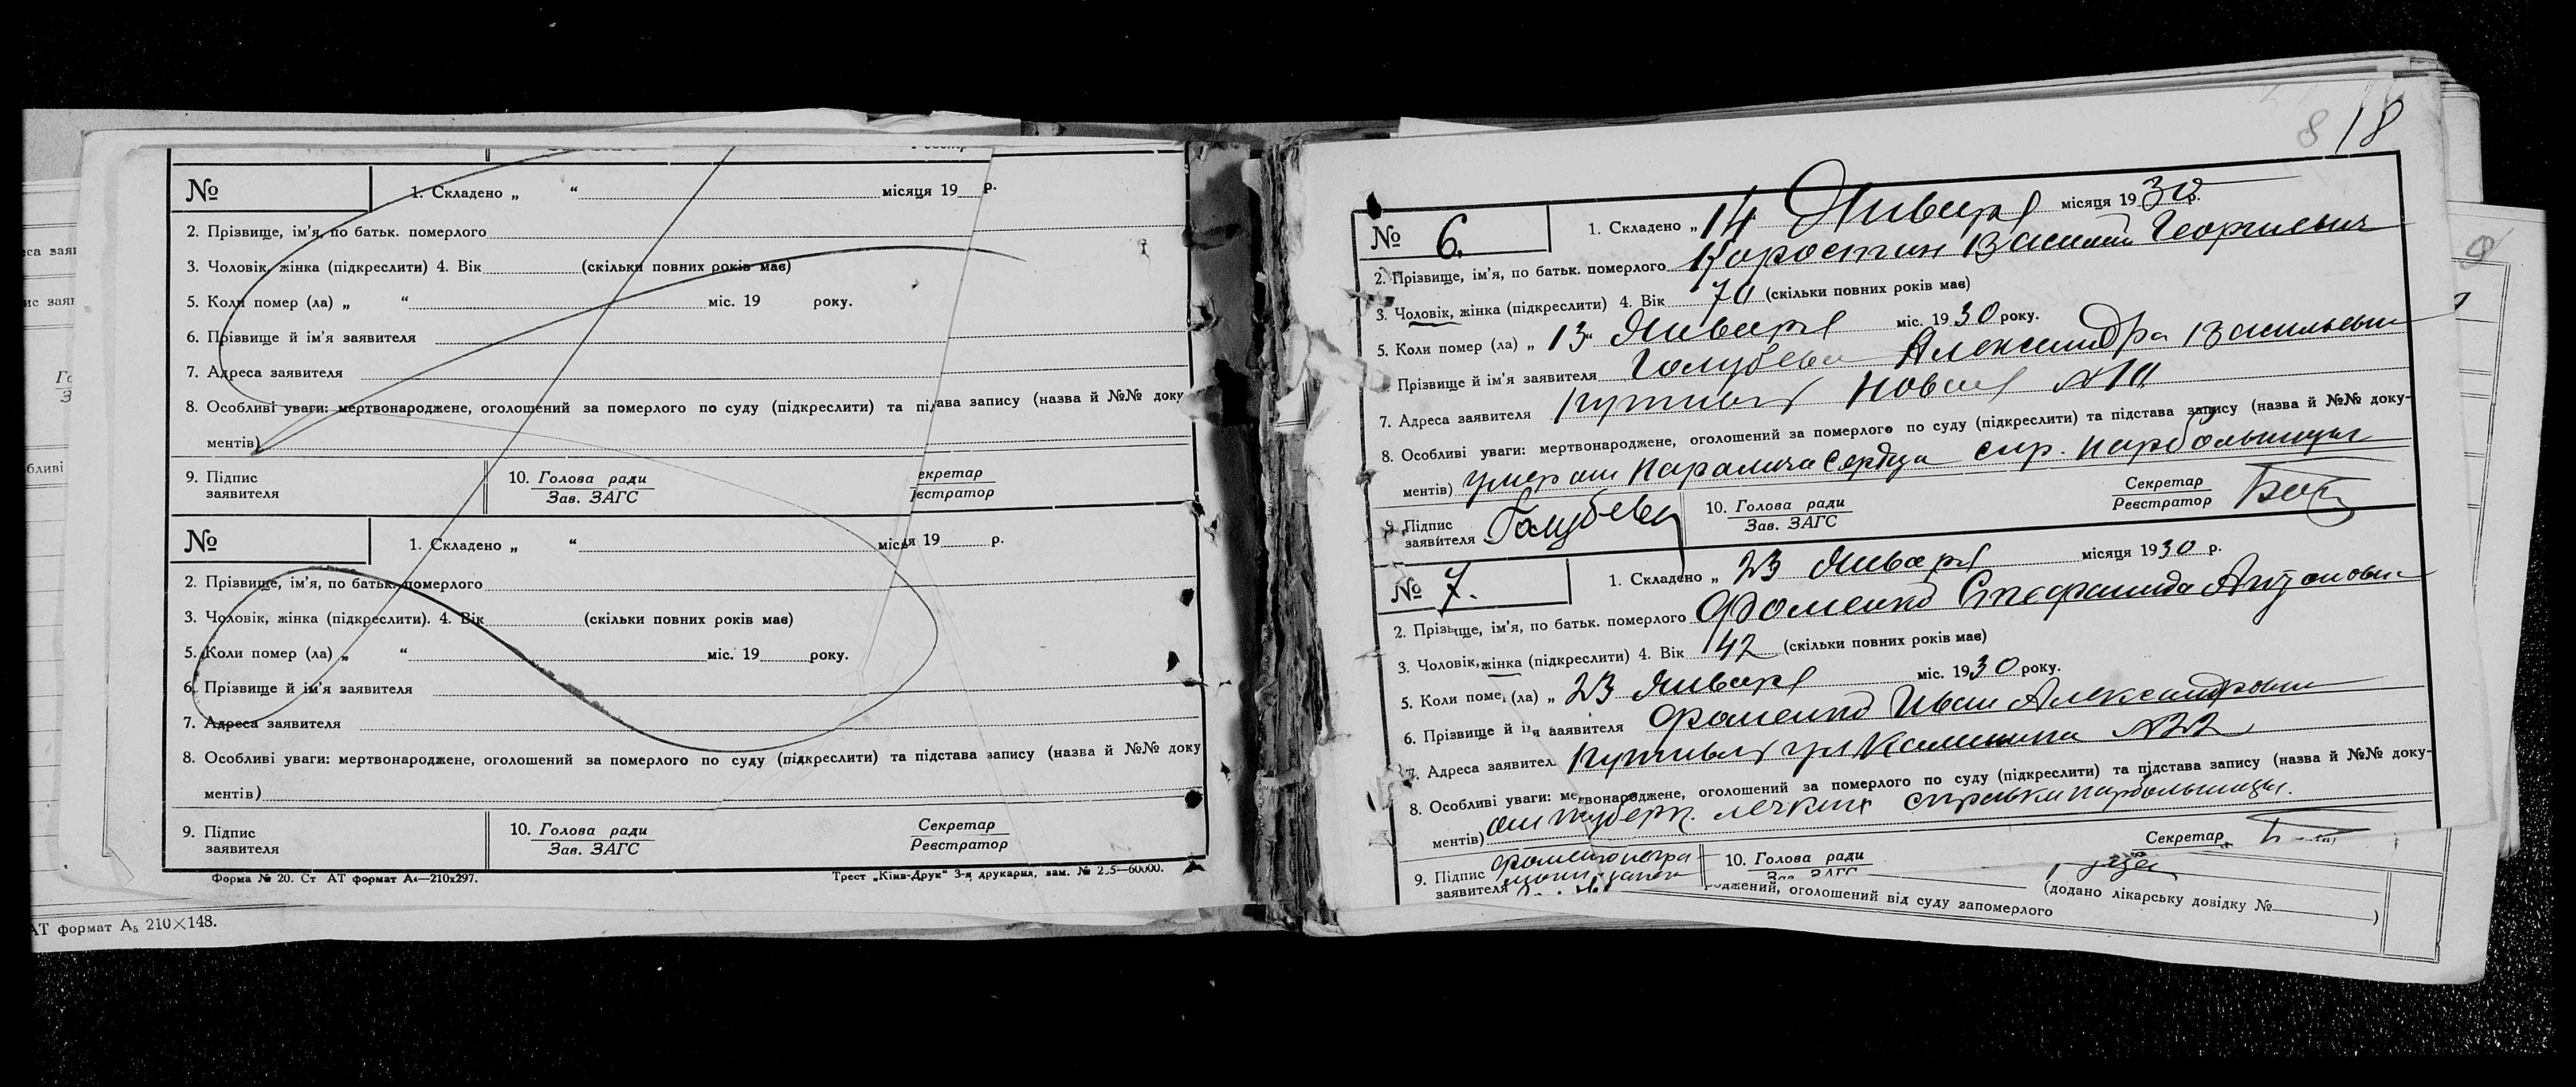 №
1. Складено „ “ місяця 19 р.
2. Прізвище, ім'я, по батьк. померлого
3. Чоловік, жінка (підкреслити) 4. Вік (скільки повних років має)
5. Коли помер (ла) „ “ міс. 19 року.
6. Прізвище й ім'я заявителя
7. Адреса заявителя
8. Особливі уваги: мертвонароджене, оголошений за померлого по суду (підкреслити) та підстава запису (назва й №№ доку
ментів)
9. Підпис заявителя
10. Голова ради
Зав. ЗАГС
екретар
єстратор
№
1. Складено „ “ місяця 19 р.
2. Прізвище, ім'я, по батьк. померлого
3. Чоловік, жінка (підкреслити). 4. Вік (скільки повних років має)
5. Коли помер (ла) „ “ міс. 19 року.
6. Прізвище й ім'я заявителя
7. Адреса заявителя
8. Особливі уваги: мертвонароджене, оголошений за померлого по суду (підкреслити) та підстава запису (назва й №№ доку
ментів)
9. Підпис заявителя
10. Голова ради
Зав. ЗАГС
Секретар
Реєстратор
Форма № 20. Ст АТ формат А4—210х297.
Трест „Київ-Друк“ 3-я друкарня, зам.
АТ формат А5 210×148.
8 18
№ 6.
1. Складено „ 14 Января місяця 1930 р.
2. Прізвище, ім'я, по батьк. померлого Коростин Василий Георгиевич
3. Чоловік, жінка (підкреслити) 4. Вік 70 (скільки повних років має)
5. Коли помер (ла) „ 13“ Января міс. 1930 року.
Прізвище й ім'я заявителя Голубева Александра Васильевн
7. Адреса заявителя Путивль Новая №10
8. Особливі уваги: мертвонароджене, оголошений за померлого по суду (підкреслити) та підстава запису (назва й №№ доку-
ментів) умер от паралича сердца спр. нарбольницы
9. Підпис заявителя Голубева
10. Голова ради
Зав. ЗАГС
Секретар
Реєстратор
№ 7.
1. Складено „ 23 Января місяця 1930 р.
2. Прізвище, ім'я, по батьк. померлого Фоменко Стефанида Антоновн
3. Чоловік, жінка (підкреслити) 4. Вік 42 (скільки повних років має)
5. Коли поме (ла) „ 23 Января міс. 1930 року.
6. Прізвище й ім'я заявителя Фоменко Иван Александрович
7. Адреса заявител Путивль ул Калинина №22
8. Особливі уваги: мертвонароджене, оголошений за померлого по суду (підкреслити) та підстава запису (назва й №№ доку-
ментів) от туберк. легких справки нарбольницы.
9. Підпис заявителя Фоменко
10. Голова ради
Зав. ЗАГС
Секретар
оджений, оголошений від суду запомерлого
(додано лікарську довідку № )